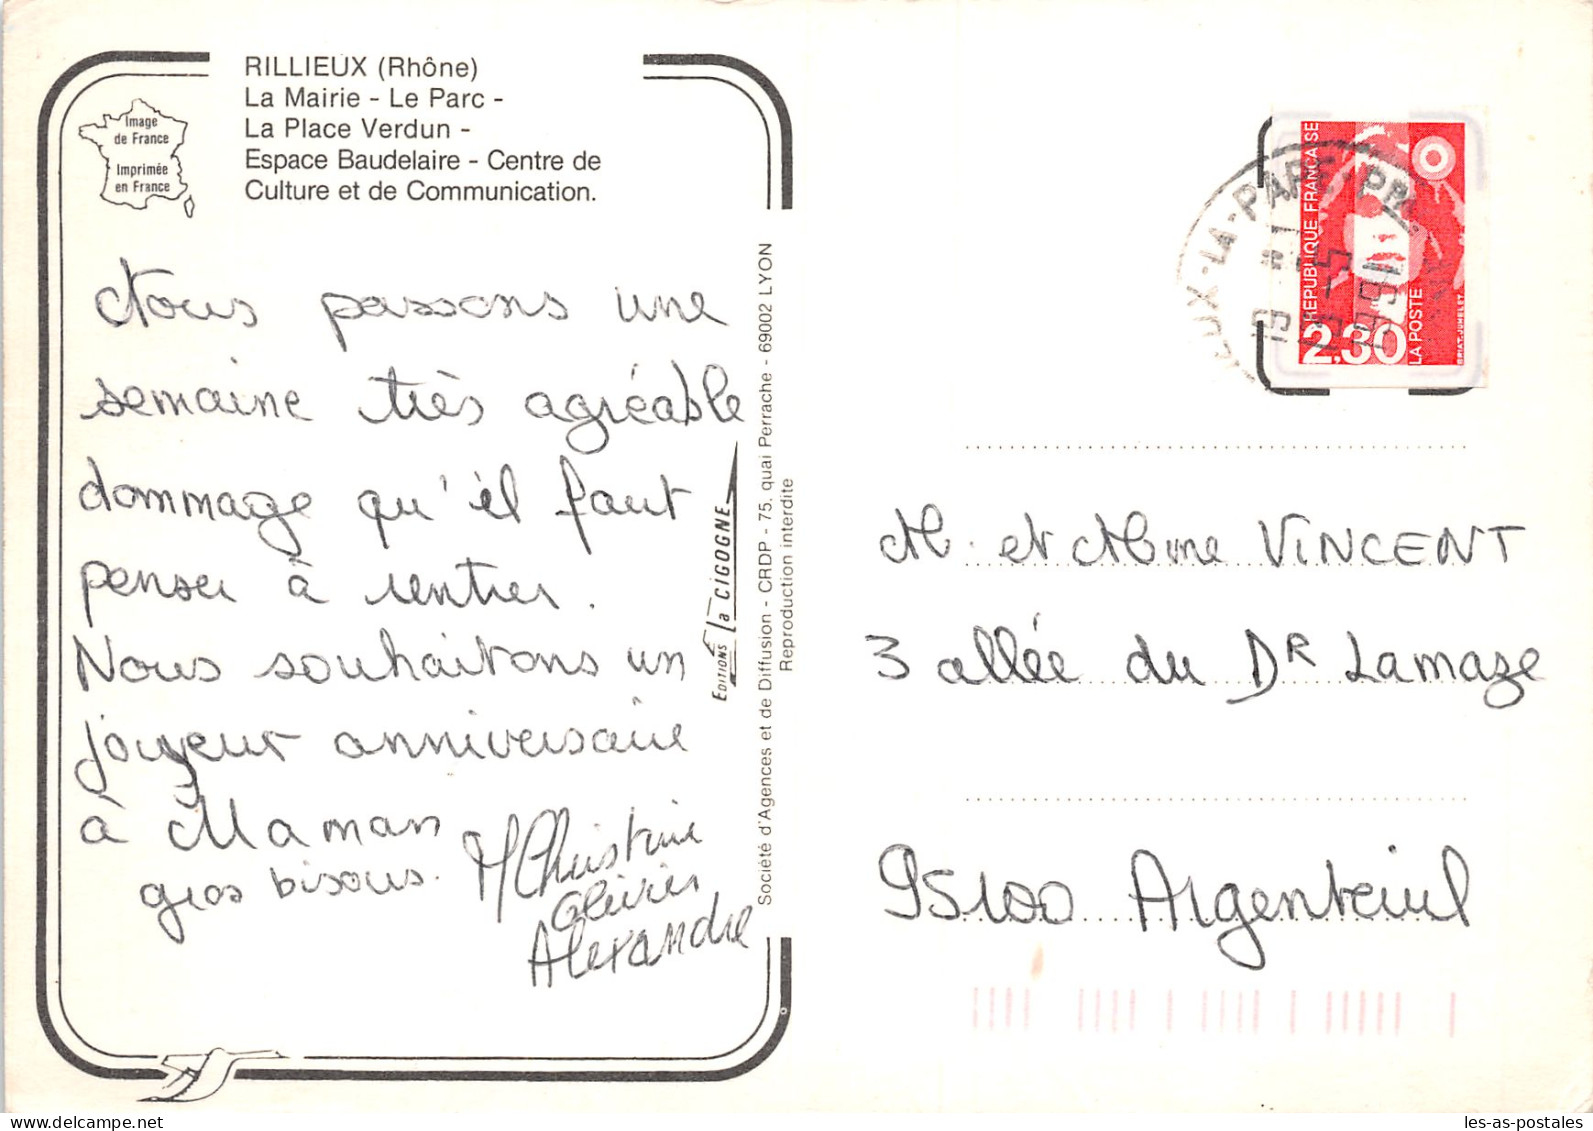 RILLIEUX (Rhône)
La Mairie - Le Parc -
La Place Verdun -
Espace Baudelaire - Centre de
Culture et de Communication.
Image
de France
Imprimée
en France
Nous passons une
semaine très agréable
dommage qu'il faut
penser à rentrer.
Nous souhaitons un
joyeux anniversaire
à Maman
gros bisous.
M Christine
Olivier
Alexandre
EDITIONS la CIGOGNE
Société d'Agences et de Diffusion - CRDP - 75, quai Perrache - 69002 LYON
Reproduction interdite
REPUBLIQUE FRANÇAISE
2.30
LA POSTE
BRIAT-JUMELET
LA-PAPE
M. et Mme VINCENT
3 allée du DR Lamaze
95100 Argenteuil
les-as-postales